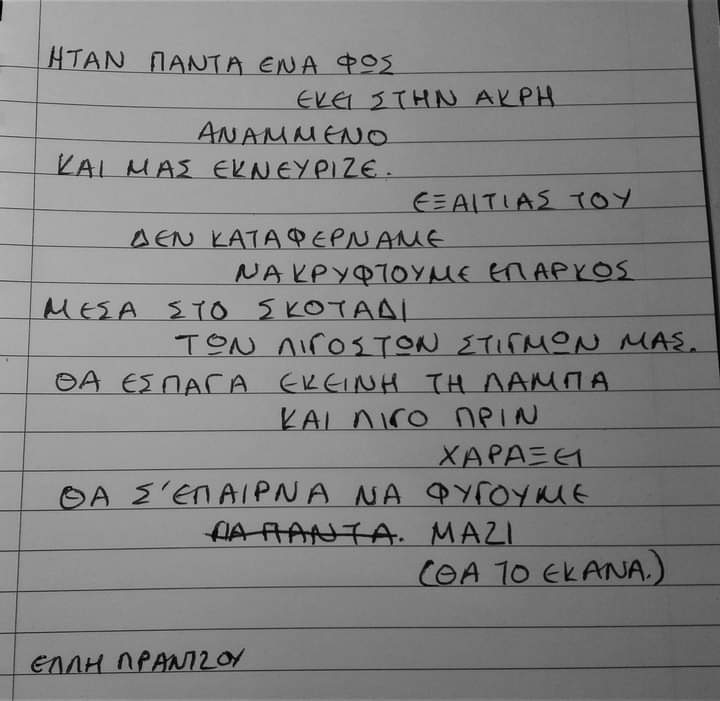 ΗΤΑΝ ΠΑΝΤΑ ΕΝΑ ΦΩΣ
ΕΚΕΙ ΣΤΗΝ ΑΚΡΗ
ΑΝΑΜΜΕΝΟ
ΚΑΙ ΜΑΣ ΕΚΝΕΥΡΙΖΕ.
ΕΞΑΙΤΙΑΣ ΤΟΥ
ΔΕΝ ΚΑΤΑΦΕΡΝΑΜΕ
ΝΑ ΚΡΥΦΤΟΥΜΕ ΕΠΑΡΚΩΣ
ΜΕΣΑ ΣΤΟ ΣΚΟΤΑΔΙ
ΤΩΝ ΛΙΓΟΣΤΩΝ ΣΤΙΓΜΩΝ ΜΑΣ.
ΘΑ ΕΣΠΑΓΑ ΕΚΕΙΝΗ ΤΗ ΛΑΜΠΑ
ΚΑΙ ΛΙΓΟ ΠΡΙΝ
ΧΑΡΑΞΕΙ
ΘΑ Σ'ΕΠΑΙΡΝΑ ΝΑ ΦΥΓΟΥΜΕ
ΓΙΑ ΠΑΝΤΑ. ΜΑΖΙ
(ΘΑ ΤΟ ΕΚΑΝΑ.)
ΕΛΛΗ ΠΡΑΝΤΖΟΥ